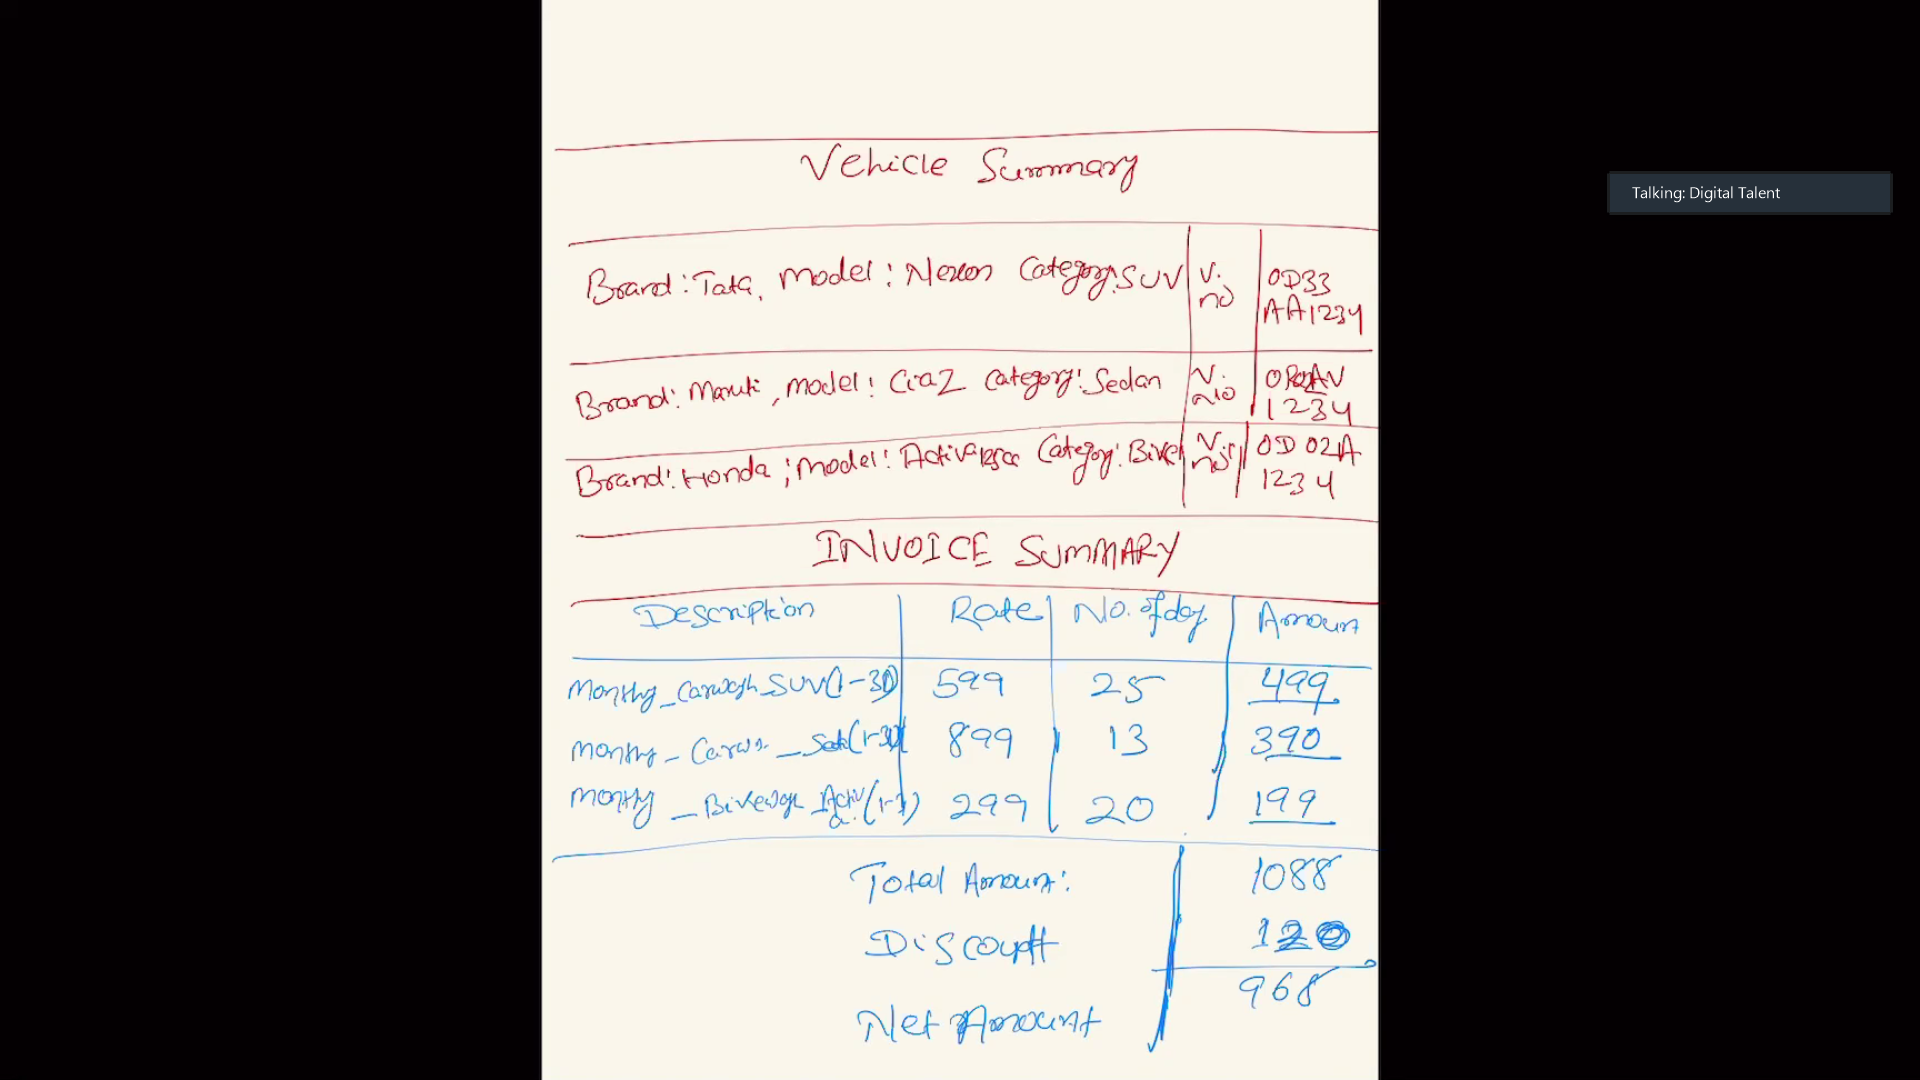 Vehicle Summary
Talking: Digital Talent
Brand: Tata, Model: Nexon Category: SUV V. no OD33 AA1234
Brand: Maruti, Model: Ciaz Category: Sedan V. no 1234
Brand: Honda; Model: Activa Category: Bike V. no OD 02A 1234
INVOICE SUMMARY
Description Rate No. of day Amount
Monthly_Carwash_SUV(1-30) 599 25 499
Monthly_Carw. 899 13 390
Monthly_Bikewash_Activa 299 20 199
Total Amount: 1088
Discount 120
968
Net Amount